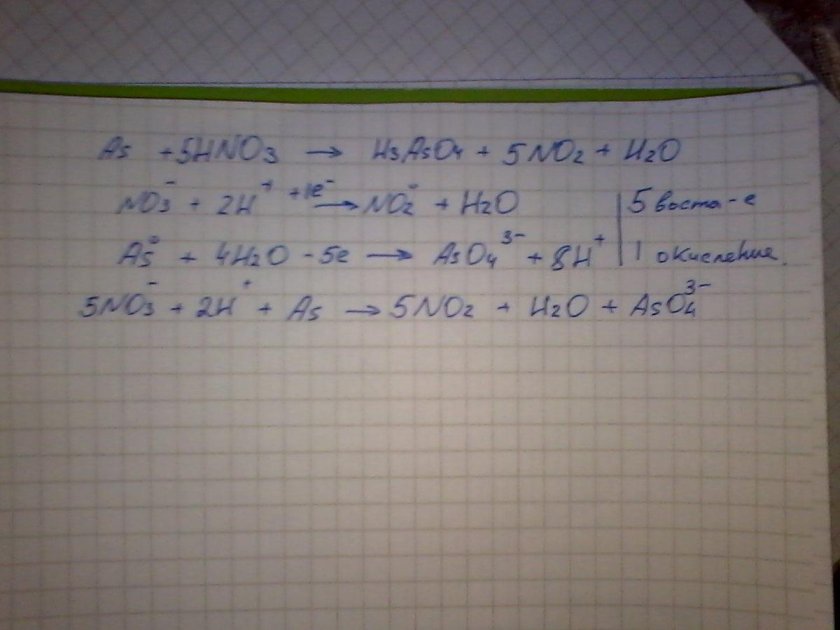 As + 5HNO3 → H3AsO4 + 5NO2 + H2O
NO3⁻ + 2H⁺ +1e⁻ → NO2⁻ + H2O | 5 восста-е
As⁰ + 4H2O - 5e → AsO4³⁻ + 8H⁺ | 1 окисление.
5NO3⁻ + 2H⁺ + As → 5NO2 + H2O + AsO4³⁻